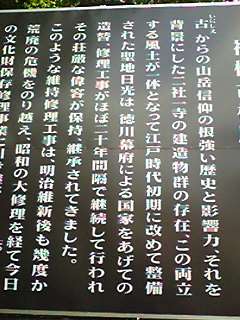 いにしえ
古からの山岳信仰の根強い歴史と影響力、それを
背景にした二社一寺の建造物群の存在、この両立
する風土が一体となって江戸時代初期に改めて整備
された聖地日光は、徳川幕府による国家をあげての
造替、修理工事がほぼ二十年間隔で継続して行われ
その荘厳な偉容が保持、継承されてきました。
このような維持修理工事は、明治維新後も幾度か
荒廃の危機をのり越え、昭和の大修理を経て今日
の文化財保存修理事業に